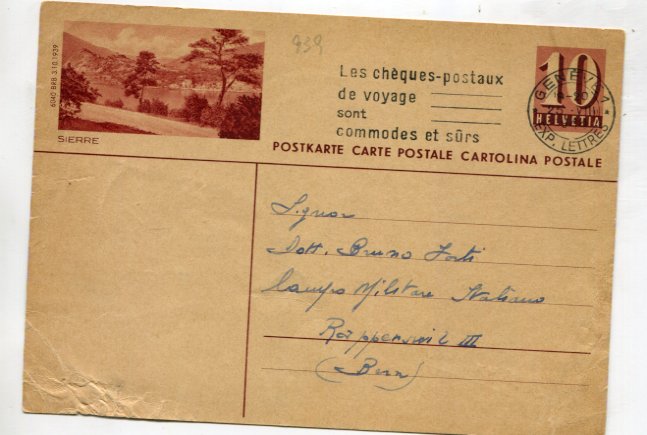 6040 BRB 3.10.1939
SIERRE
939
Les chèques-postaux
de voyage
sont
commodes et sûrs
10
HELVETIA
GENÈVE 1
EXP. LETTRES
POSTKARTE CARTE POSTALE CARTOLINA POSTALE
Signor
Dott. Bruno Forti
Campo Militare Italiano
III
(Bern)